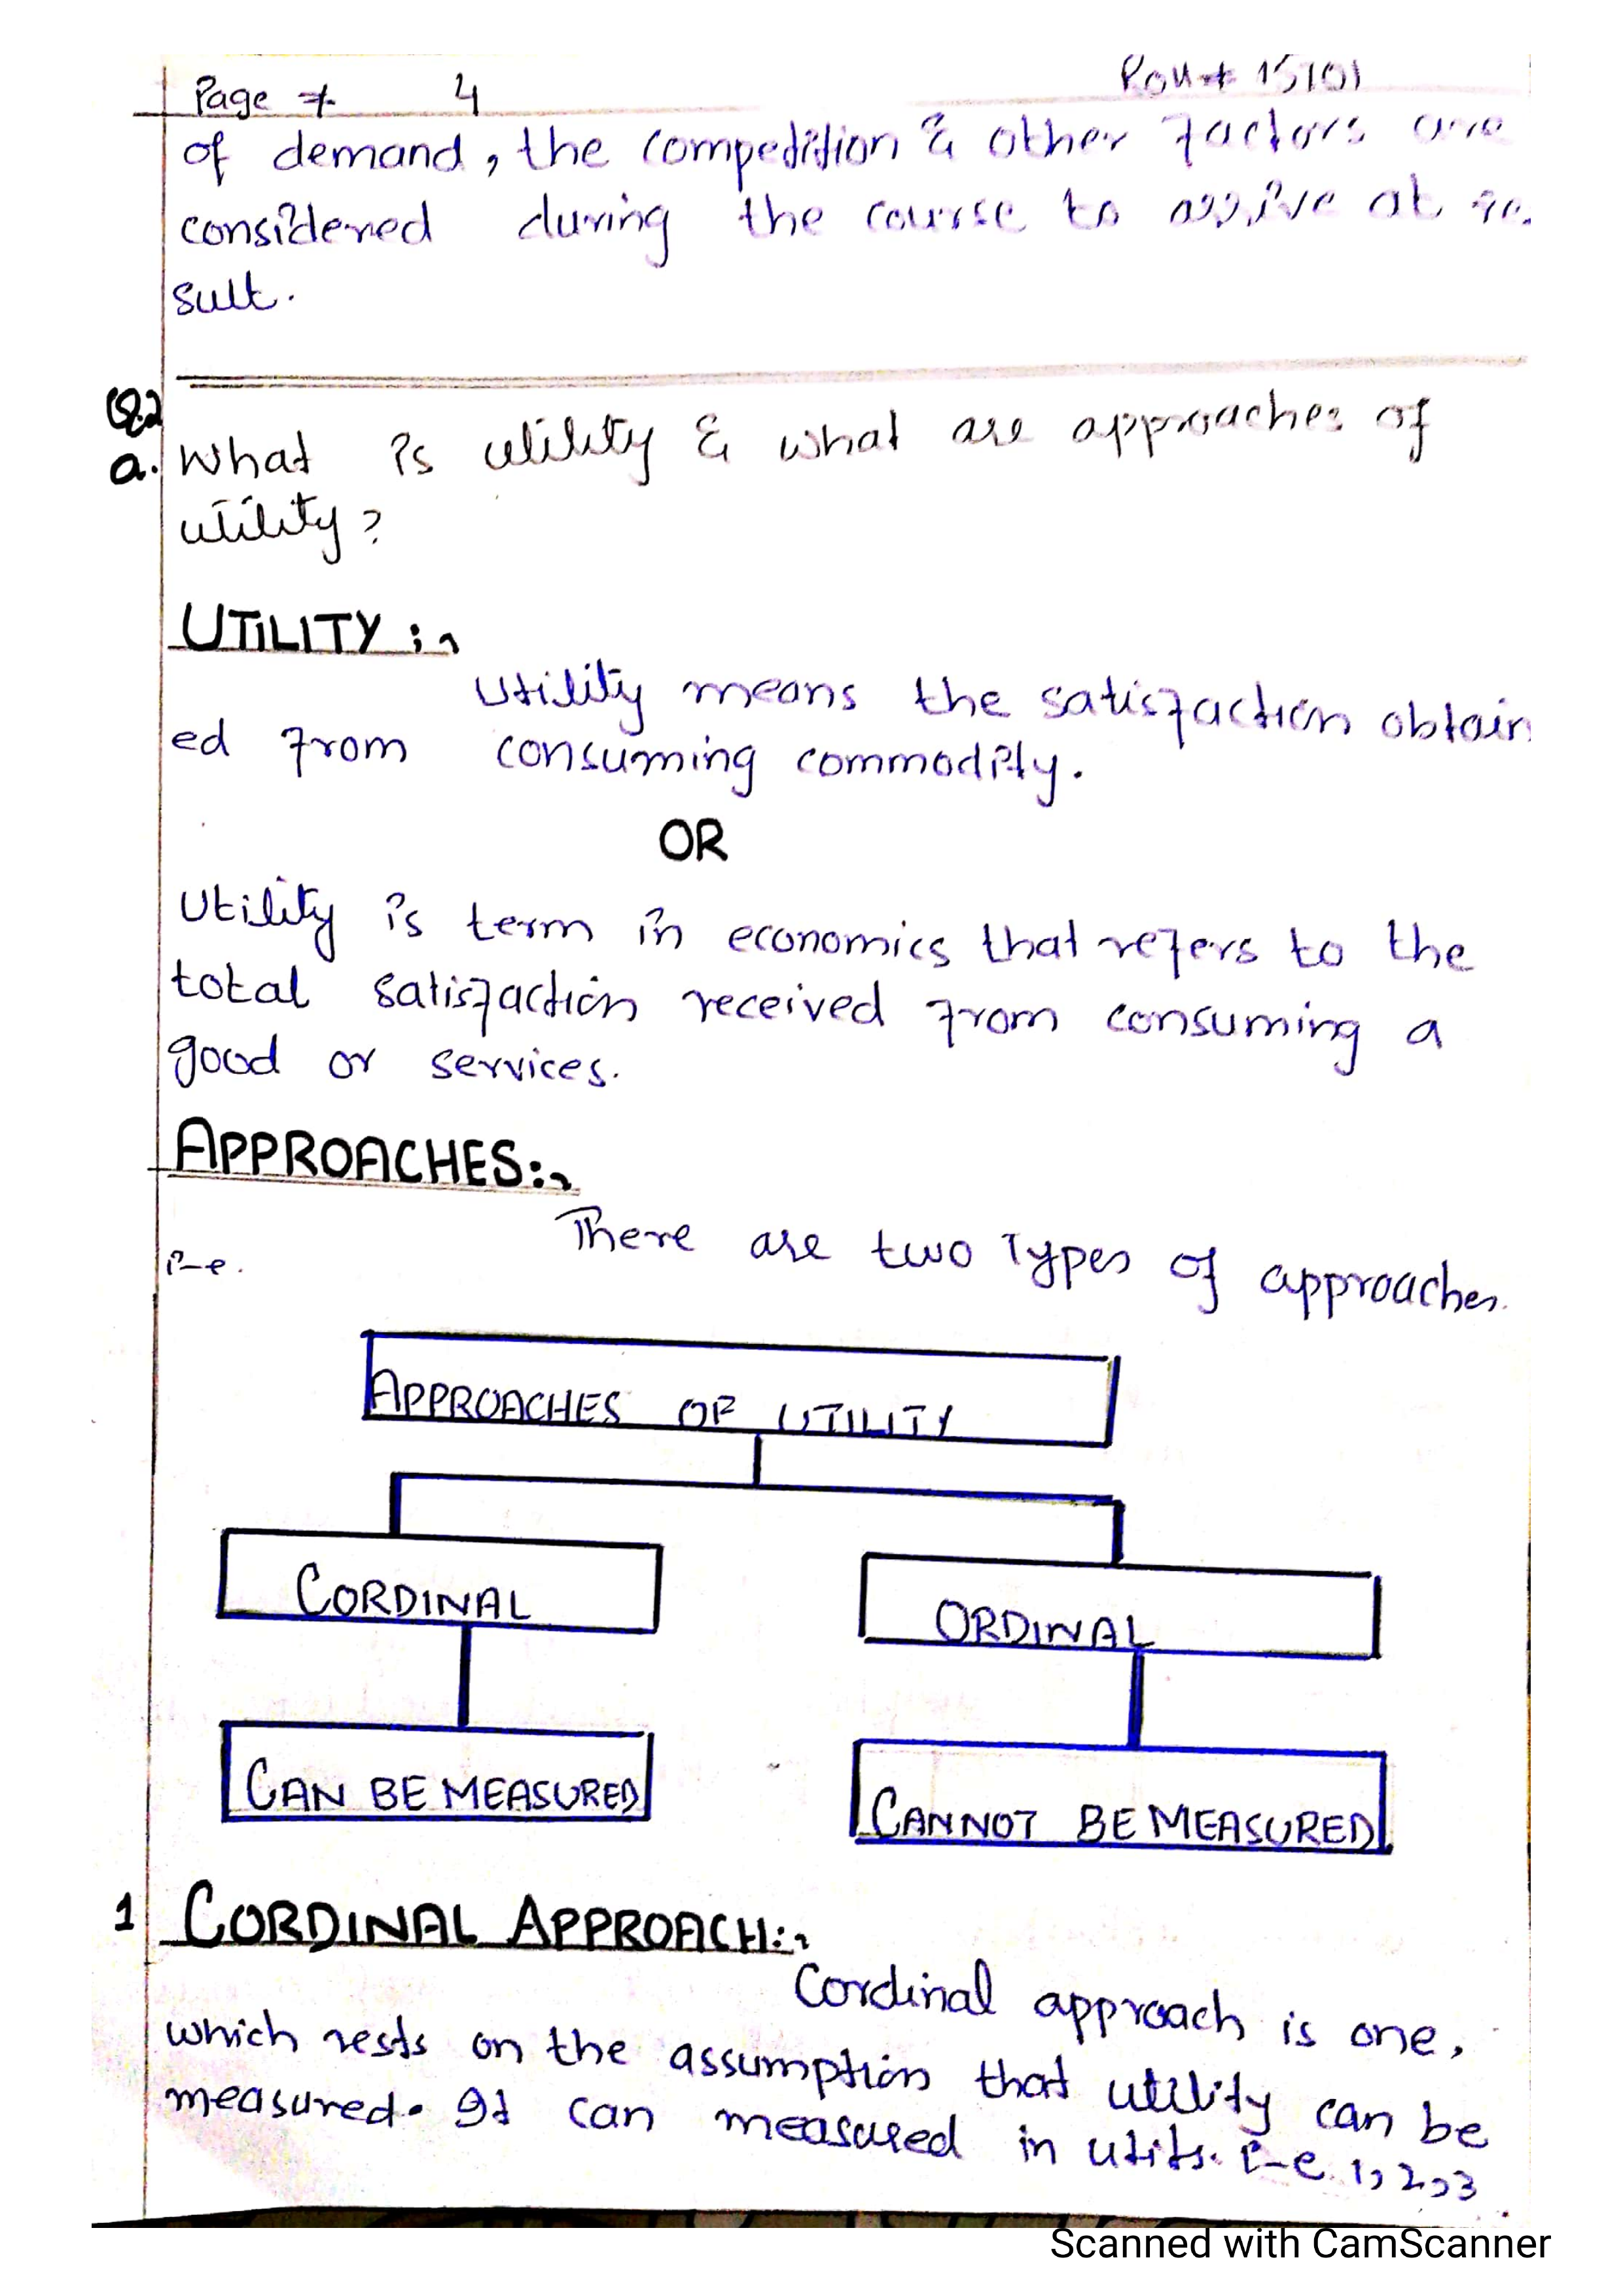 Page # 4
Roll # 15101
of demand, the compedition & other factors are
considered during the course to arrive at re.
sult.
Q2
a. What is utility & what are approaches of
utility?
UTILITY :-
Utility means the satisfaction obtain
ed from consuming commodity.
OR
Utility is term in economics that refers to the
total satisfaction received from consuming a
good or services.
APPROACHES:-
There are two Types of approaches.
i-e.
APPROACHES OF UTILITY
CORDINAL
ORDINAL
CAN BE MEASURED
CANNOT BE MEASURED
1 CORDINAL APPROACH:-
Cordinal approach is one,
which rests on the assumption that utility can be
measured. It can measured in utits. i-e. 1, 2, 3
Scanned with CamScanner